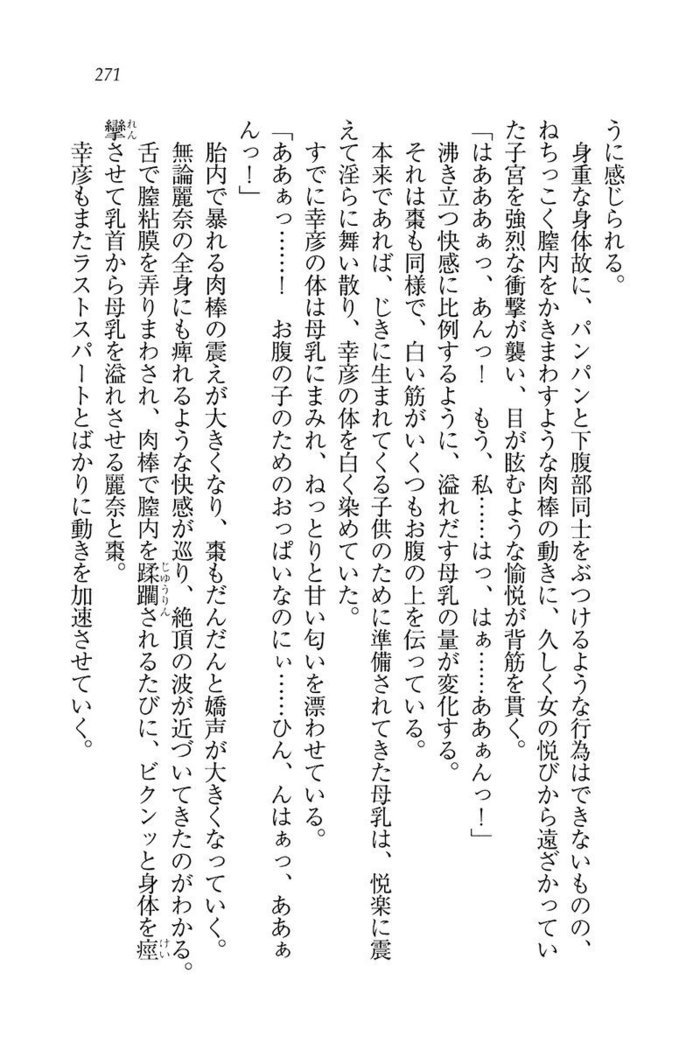 271
うに感じられる。
　身重な身体故に、パンパンと下腹部同士をぶつけるような行為はできないものの、
ねちっこく膣内をかきまわすような肉棒の動きに、久しく女の悦びから遠ざかってい
た子宮を強烈な衝撃が襲い、目が眩むような愉悦が背筋を貫く。
「はあああぁっ、あんっ！　もう、私……はっ、はぁ……ああぁんっ！」
　沸き立つ快感に比例するように、溢れだす母乳の量が変化する。
　それは棗も同様で、白い筋がいくつもお腹の上を伝っている。
　本来であれば、じきに生まれてくる子供のために準備されてきた母乳は、悦楽に震
えて淫らに舞い散り、幸彦の体を白く染めていた。
　すでに幸彦の体は母乳にまみれ、ねっとりと甘い匂いを漂わせている。
「ああぁっ……！　お腹の子のためのおっぱいなのにぃ……ひん、んはぁっ、ああぁ
んっ！」
　胎内で暴れる肉棒の震えが大きくなり、棗もだんだんと嬌声が大きくなっていく。
　無論麗奈の全身にも痺れるような快感が巡り、絶頂の波が近づいてきたのがわかる。
　舌で膣粘膜を弄りまわされ、肉棒で膣内を蹂躙じゅうりんされるたびに、ビクンッと身体を痙けい
攣れんさせて乳首から母乳を溢れさせる麗奈と棗。
　幸彦もまたラストスパートとばかりに動きを加速させていく。